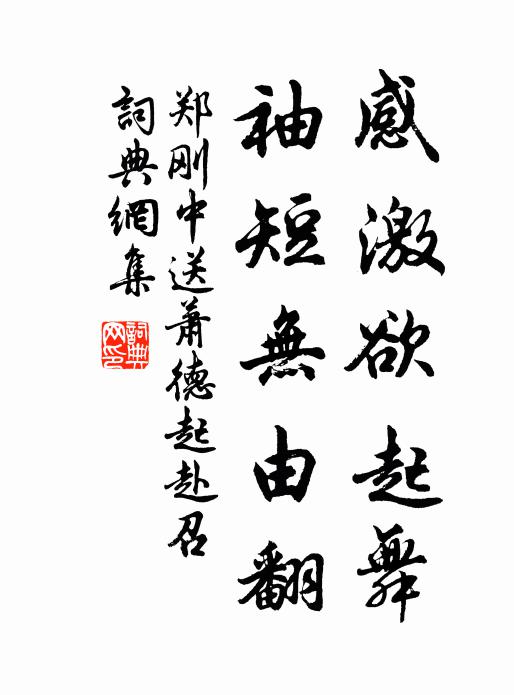 感激欲起舞
袖短無由翻
郑刚中送萧德起赴召
詞典網集
詞典網印